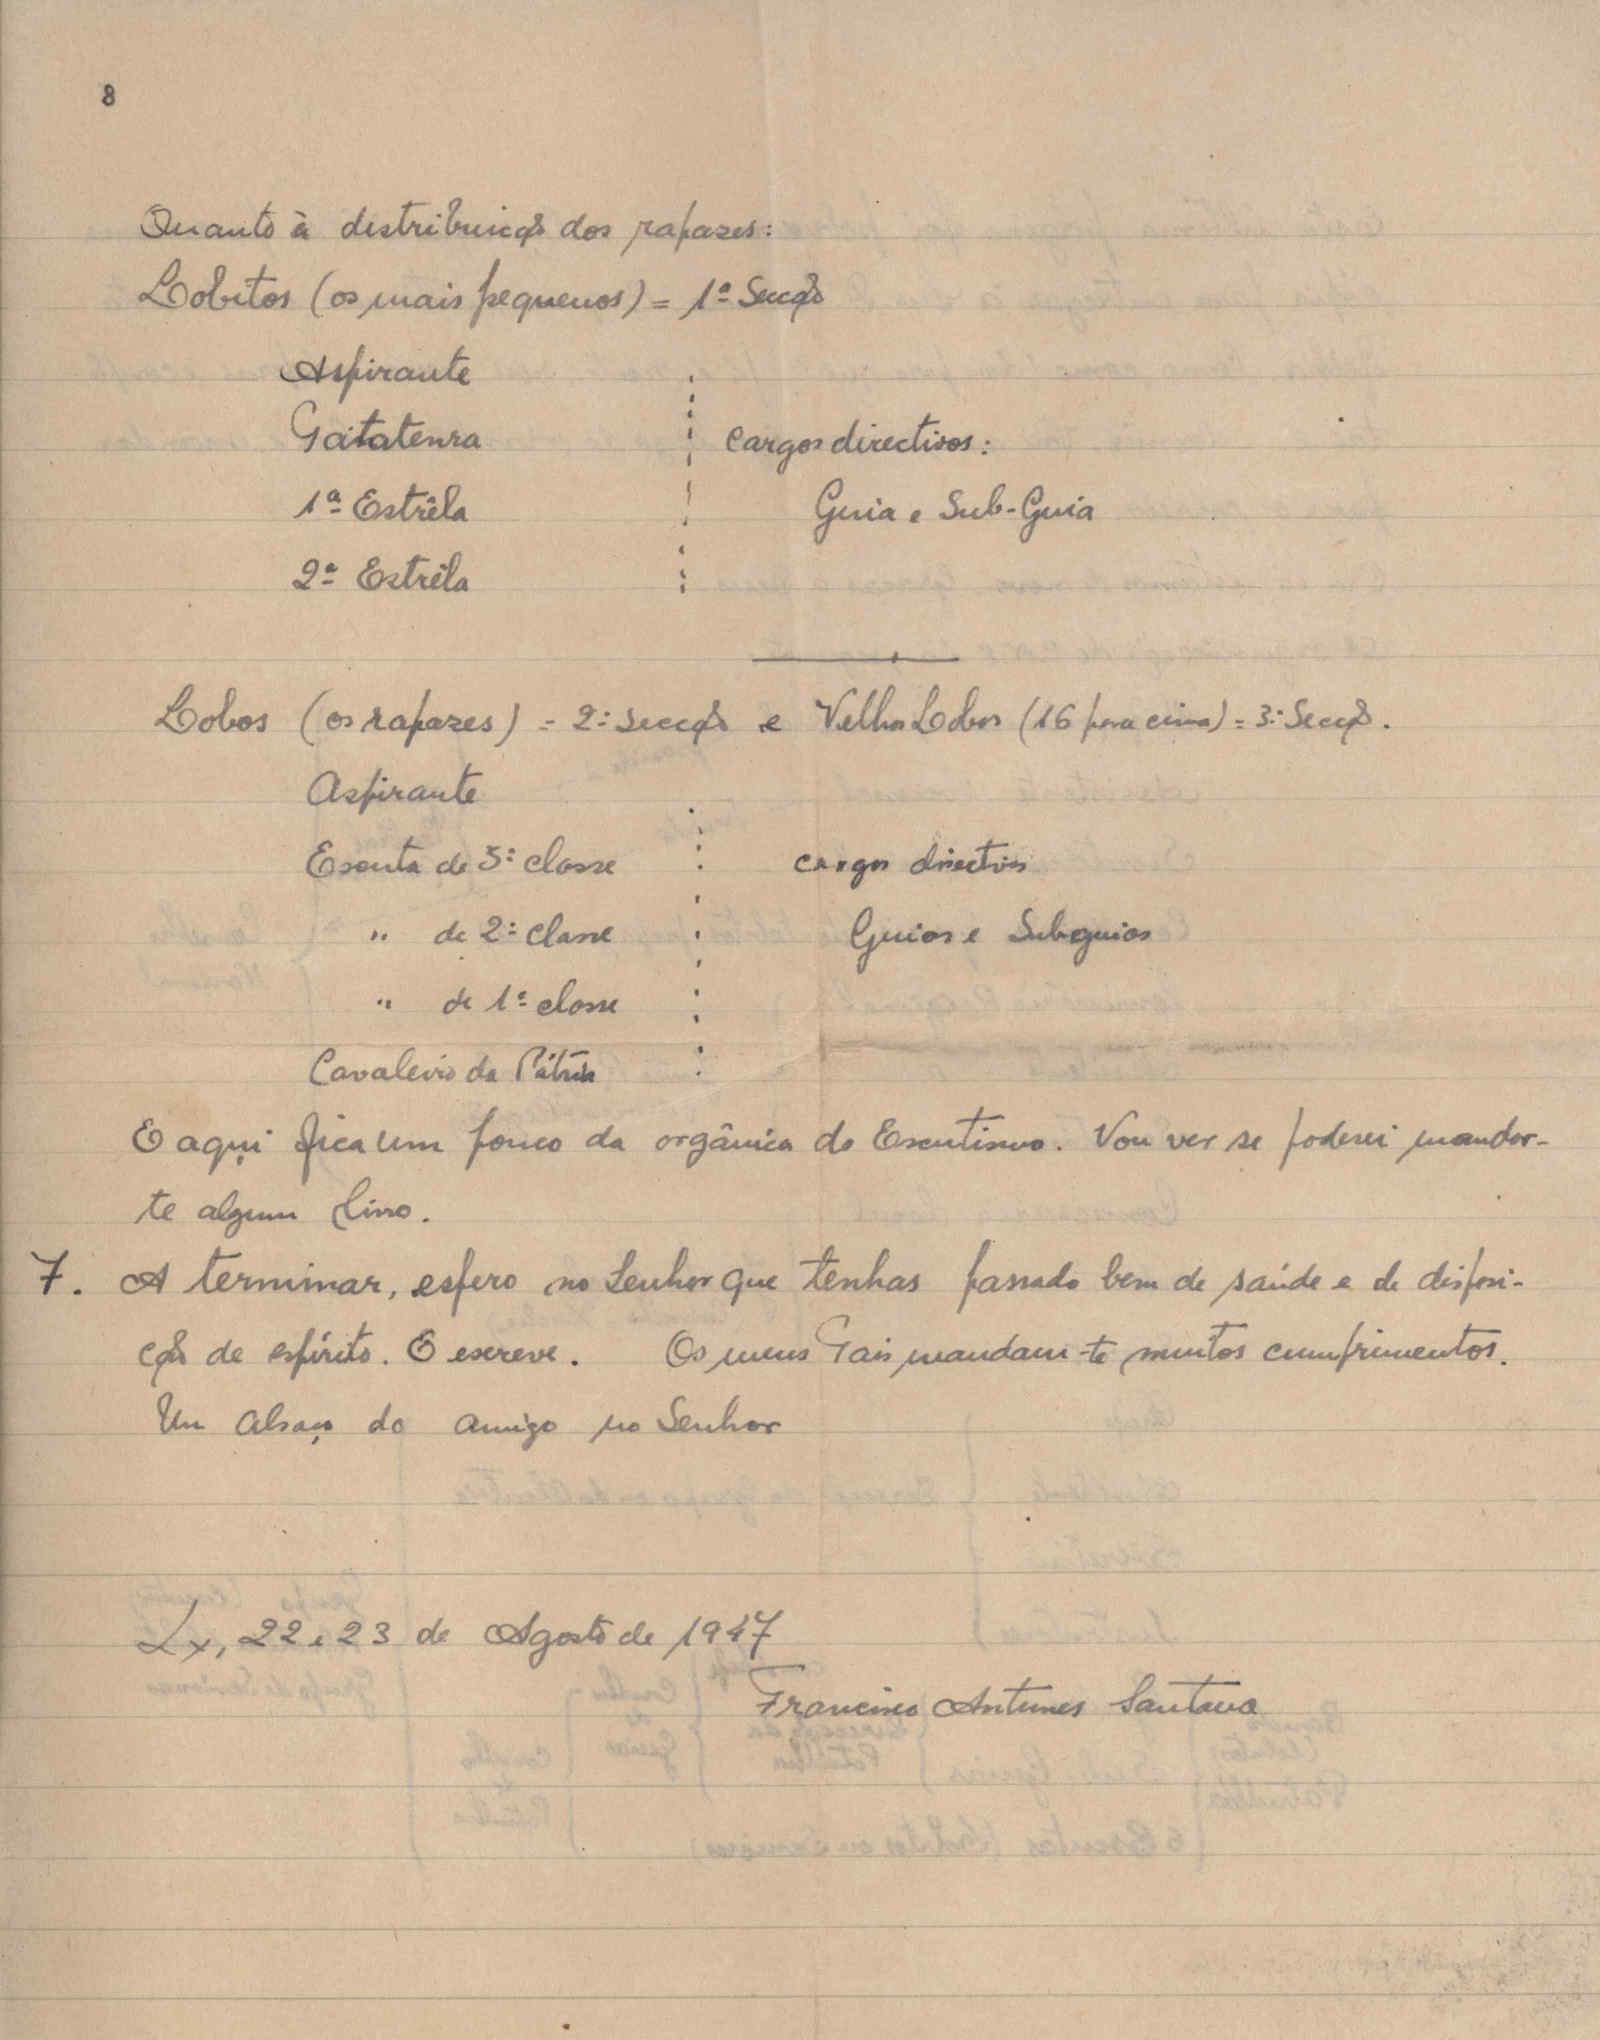 8
Quanto à distribuição dos rapazes:
Lobitos (os mais pequenos) = 1ª Secção
Aspirante
Patatenra
cargos directivos:
1ª Estrêla
Guia e Sub-Guia
2ª Estrêla
Lobos (os rapazes) = 2ª Secção e Velhos Lobos (16 para cima) = 3ª Secção.
Aspirante
Escuta de 3ª classe
cargos directivos
" de 2ª classe
Guias e Subguias
" de 1ª classe
Cavaleiro da Pátria
E aqui fica um pouco da orgânica do Escutismo. Vou ver se poderei mandar-
te algum livro.
7. A terminar, espero no Senhor que tenhas passado bem de saúde e de disposi-
ção de espírito. E escreve. Os meus Pais mandam-te muitos cumprimentos.
Um abraço do amigo no Senhor
Lx, 22 e 23 de Agosto de 1947
Francisco Antunes Santana